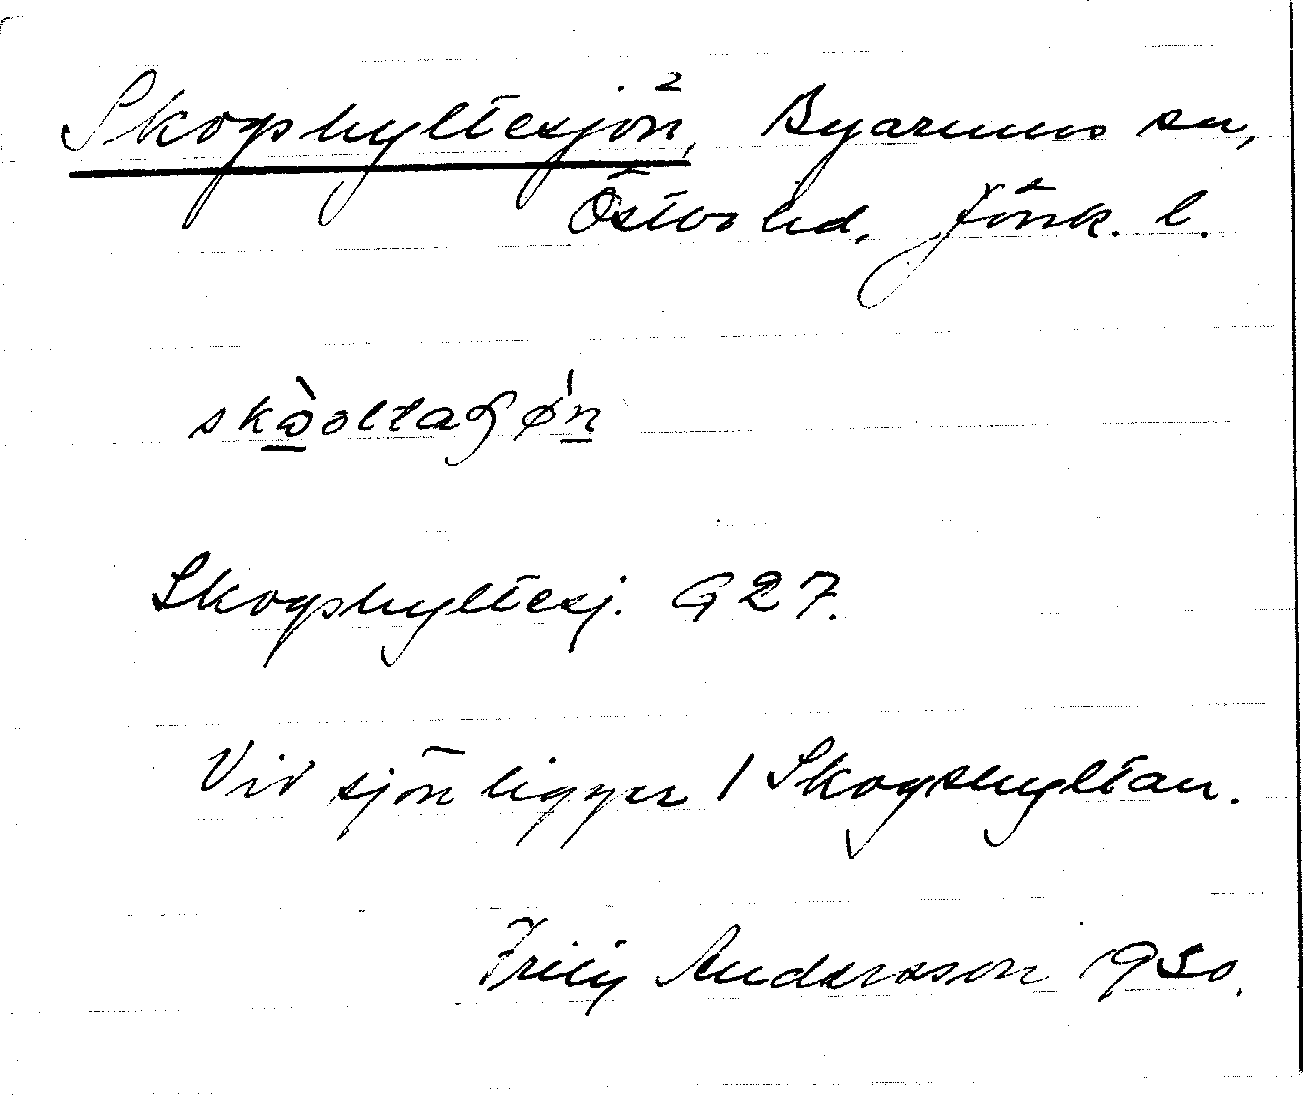 Skogshyltesjön, Byarums sn,
Östbo hd. Jönk. l.
skòoltaʃǿn
Skogshyltesj. G 27.
Vid sjön ligger / Skogshyltan.
Andersson 1930.